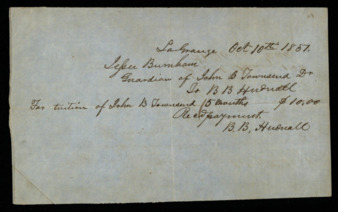 La Grange Oct. 10th 1851.
Jesse Burnham
Guardian of John B Townsend Dr
To B B Hudnall
For tuition of John B Townsend 5 months $10,00
Recd payment
B. B. Hudnall